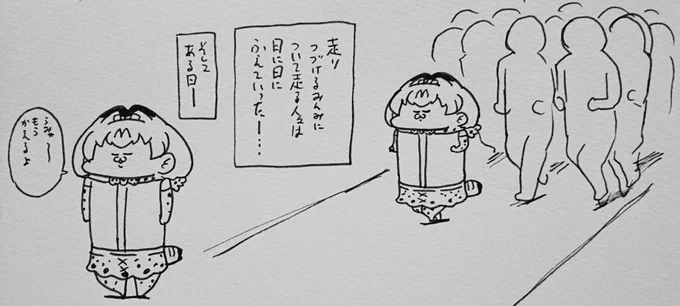 走り
つづけるみんみに
ついて走る人々は
日に日に
ふえていったー…
そして
ある日ー
うみゃ～
もう
かえるよ